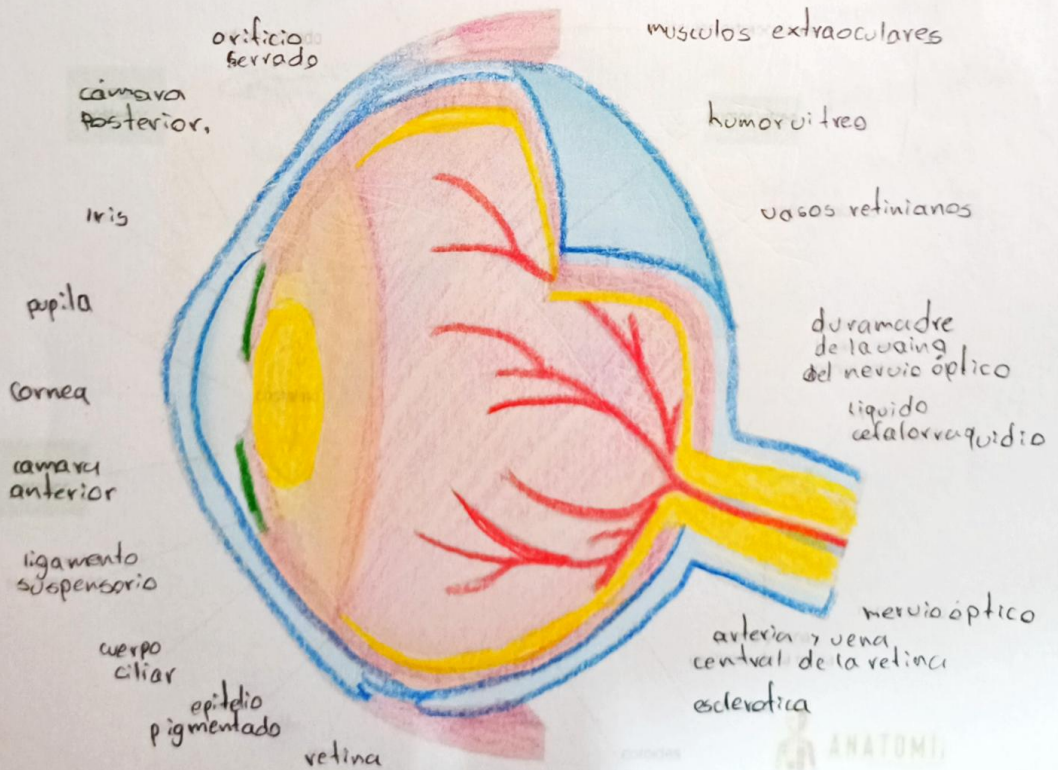 orificio
serrado
cámara
posterior,
iris
pupila
cornea
camara
anterior
ligamento
suspensorio
cuerpo
ciliar
epitelio
pigmentado
retina
musculos extraoculares
humor vitreo
vasos retinianos
duramadre
de la vaina
del nervio óptico
liquido
cefalorraquidio
nervio óptico
arteria y vena
central de la retina
esclerotica
ANATOMI